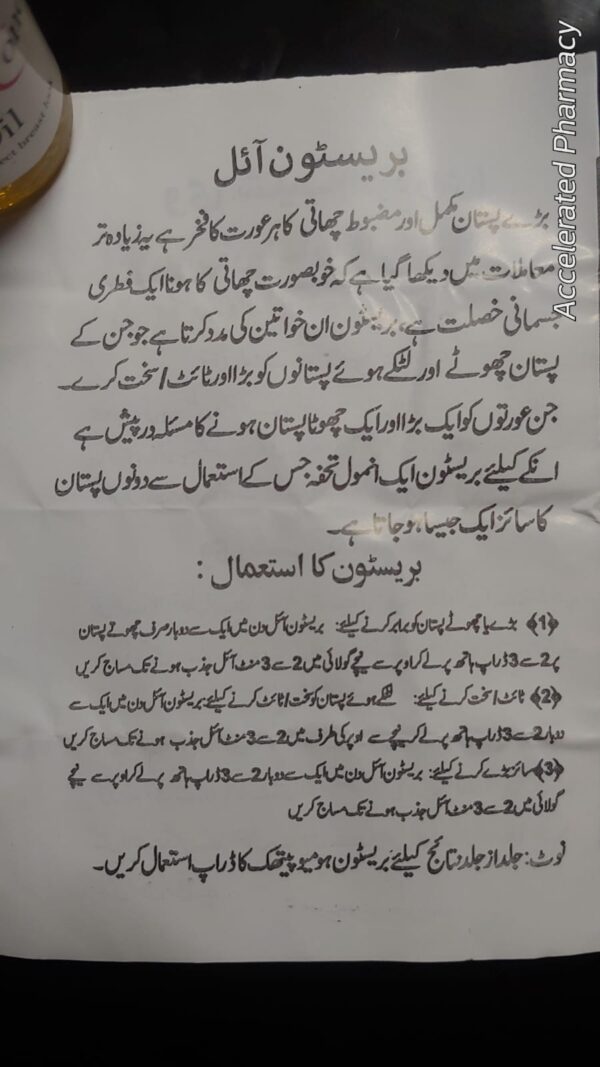 بریسٹون آئل
بڑے پستان مکمل اور مضبوط چھاتی کا ہر عورت کا فخر ہے یہ زیادہ تر
معاملات میں دیکھا گیا ہے کہ خوبصورت چھاتی کا ہونا ایک فطری
جسمانی خصلت ہے، بریسٹون ان خواتین کی مدد کرتا ہے جو جن کے
پستان چھوٹے اور لٹکے ہوئے پستانوں کو بڑا اور ٹائٹ / سخت کرے۔
جن عورتوں کو ایک بڑا اور ایک چھوٹا پستان ہونے کا مسئلہ درپیش ہے
انکے کیلئے بریسٹون ایک انمول تحفہ جس کے استعمال سے دونوں پستان
کا سائز ایک جیسا ہو جاتا ہے۔
بریسٹون کا استعمال :
﴿1﴾ بڑے یا چھوٹے پستان کو برابر کرنے کیلئے: بریسٹون آئل دن میں ایک سے دو بار صرف چھوٹے پستان
پر 2 سے 3 ڈراپ ہاتھ پر لے کر اوپر سے نیچے گولائی میں 2 سے 3 منٹ آئل جذب ہونے تک مساج کریں
﴿2﴾ ٹائٹ / سخت کرنے کیلئے: لٹکے ہوئے پستان کو سخت / ٹائٹ کرنے کیلئے: بریسٹون آئل دن میں ایک سے
دو بار 2 سے 3 ڈراپ ہاتھ پر لے کر نیچے سے اوپر کی طرف میں 2 سے 3 منٹ آئل جذب ہونے تک مساج کریں
﴿3﴾ سائز بڑے کرنے کیلئے: بریسٹون آئل دن میں ایک سے دو بار 2 سے 3 ڈراپ ہاتھ پر لے کر اوپر سے نیچے
گولائی میں 2 سے 3 منٹ آئل جذب ہونے تک مساج کریں
نوٹ: جلد از جلد نتائج کیلئے بریسٹون ہومیوپیتھک کا ڈراپ استعمال کریں۔
Accelerated Pharmacy
breast